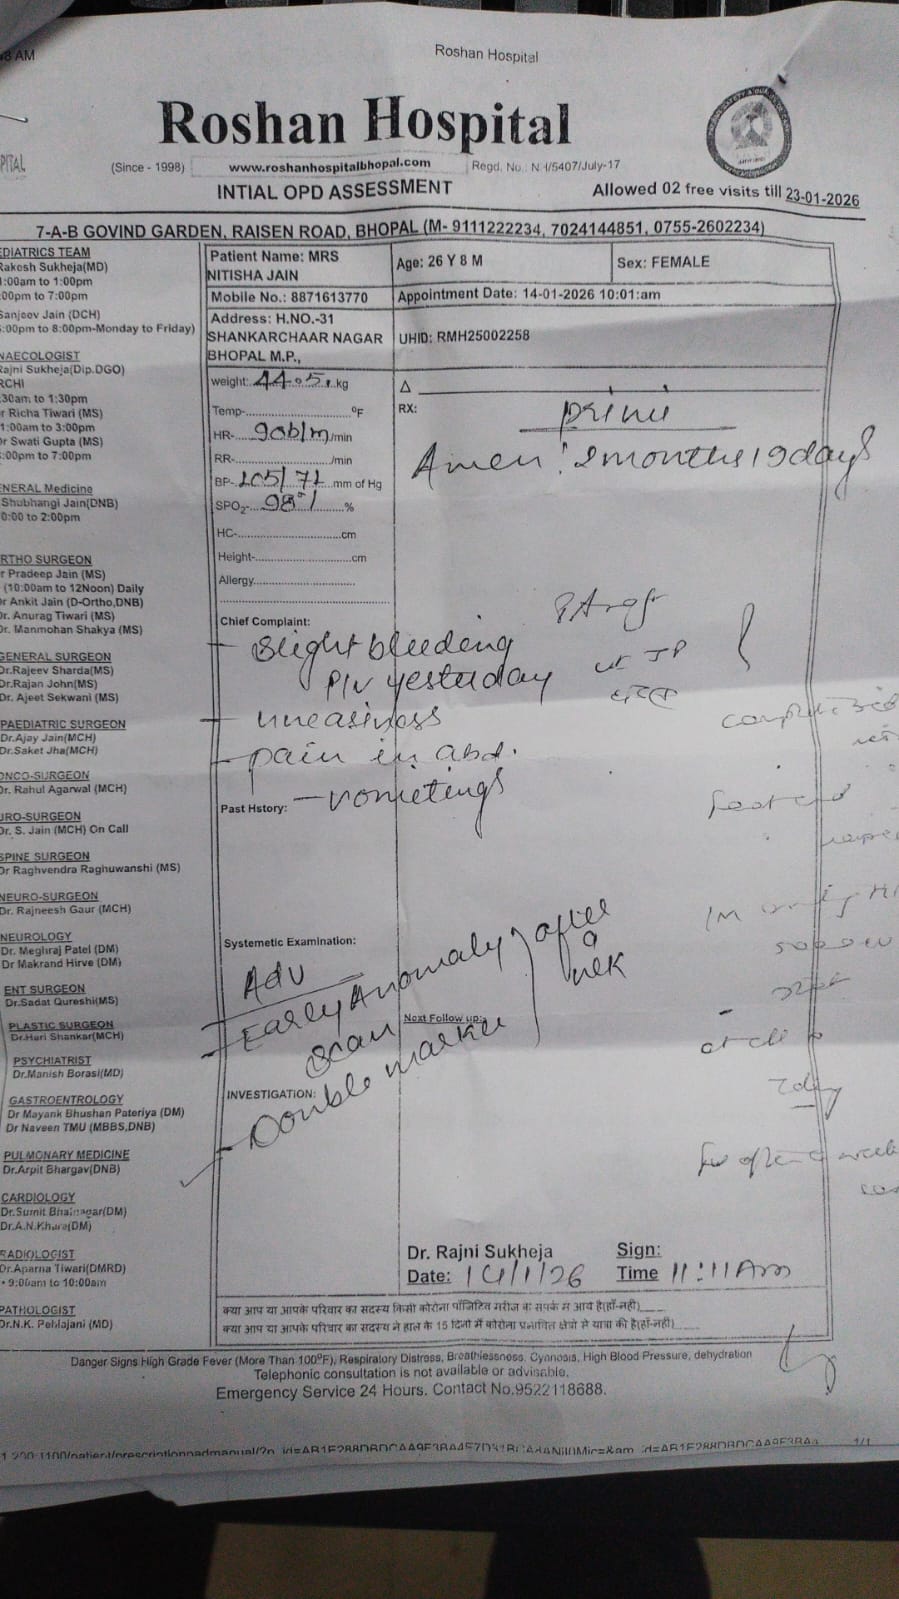 8 AM
Roshan Hospital
Roshan Hospital
PITAL
(Since - 1998)
www.roshanhospitalbhopal.com
Regd. No.: NH/5407/July-17
INTIAL OPD ASSESSMENT
Allowed 02 free visits till 23-01-2026
7-A-B GOVIND GARDEN, RAISEN ROAD, BHOPAL (M- 9111222234, 7024144851, 0755-2602234)
EDIATRICS TEAM
Rakesh Sukheja(MD)
:00am to 1:00pm
:00pm to 7:00pm
Sanjeev Jain (DCH)
:00pm to 8:00pm-Monday to Friday)
NAECOLOGIST
Rajni Sukheja(Dip.DGO)
RCHI
:30am to 1:30pm
r Richa Tiwari (MS)
1:00am to 3:00pm
r Swati Gupta (MS)
:00pm to 7:00pm
ENERAL Medicine
Shubhangi Jain(DNB)
0:00 to 2:00pm
RTHO SURGEON
r Pradeep Jain (MS)
(10:00am to 12Noon) Daily
r Ankit Jain (D-Ortho,DNB)
Dr. Anurag Tiwari (MS)
Dr. Manmohan Shakya (MS)
GENERAL SURGEON
Dr.Rajeev Sharda(MS)
Dr.Rajan John(MS)
Dr. Ajeet Sekwani (MS)
PAEDIATRIC SURGEON
Dr.Ajay Jain(MCH)
Dr.Saket Jha(MCH)
ONCO-SURGEON
Dr. Rahul Agarwal (MCH)
URO-SURGEON
Dr. S. Jain (MCH) On Call
SPINE SURGEON
Dr Raghvendra Raghuwanshi (MS)
NEURO-SURGEON
Dr. Rajneesh Gaur (MCH)
NEUROLOGY
Dr. Meghraj Patel (DM)
Dr Makrand Hirve (DM)
ENT SURGEON
Dr.Sadat Qureshi(MS)
PLASTIC SURGEON
Dr.Hari Shankar(MCH)
PSYCHIATRIST
Dr.Manish Borasi(MD)
GASTROENTROLOGY
Dr Mayank Bhushan Pateriya (DM)
Dr Naveen TMU (MBBS,DNB)
PULMONARY MEDICINE
Dr.Arpit Bhargav(DNB)
CARDIOLOGY
Dr.Sumit Bhatnagar(DM)
Dr.A.N.Khare(DM)
RADIOLOGIST
Dr.Aparna Tiwari(DMRD)
9:00am to 10:00am
PATHOLOGIST
Dr.N.K. Pehlajani (MD)
Patient Name: MRS
NITISHA JAIN
Age: 26 Y 8 M
Sex: FEMALE
Mobile No.: 8871613770
Appointment Date: 14-01-2026 10:01:am
Address: H.NO.-31
SHANKARCHAAR NAGAR
BHOPAL M.P.,
UHID: RMH25002258
weight: 44.5 kg
Temp- °F
HR- 90b/m /min
RR- /min
BP- 105/71 mm of Hg
SPO2- 98% %
HC- cm
Height- cm
Allergy
Δ
RX:
primi
Amen: 2months 19days
Chief Complaint:
- slight bleeding
P/V yesterday
- uneasiness
- pain in abd.
Past Hstory:
- vometings
Systemetic Examination:
Adv
- Early Anomaly
scan
after
a
wek
Next Follow up:
INVESTIGATION:
- Double marker
Dr. Rajni Sukheja
Sign:
Date: 14/1/26
Time 11:11Am
क्या आप या आपके परिवार का सदस्य किसी कोरोना पॉजिटिव मरीज के संपर्क में आये है(हाँ-नही)
क्या आप या आपके परिवार का सदस्य ने हाल के 15 दिनों में कोरोना प्रभावित क्षेत्रो से यात्रा की है(हाँ-नही)
Danger Signs High Grade Fever (More Than 100°F), Respiratory Distress, Breathlessness, Cyanosis, High Blood Pressure, dehydration
Telephonic consultation is not available or advisable.
Emergency Service 24 Hours. Contact No.9522118688.
1/1